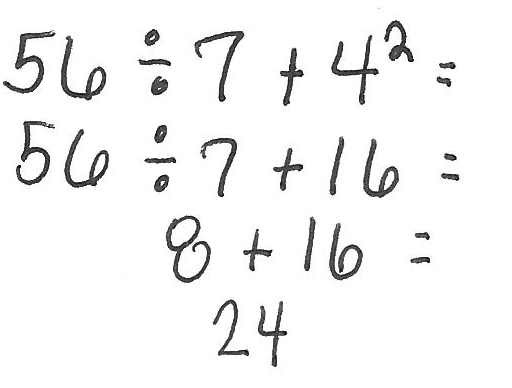 56 ÷ 7 + 4² =
56 ÷ 7 + 16 =
8 + 16 =
24